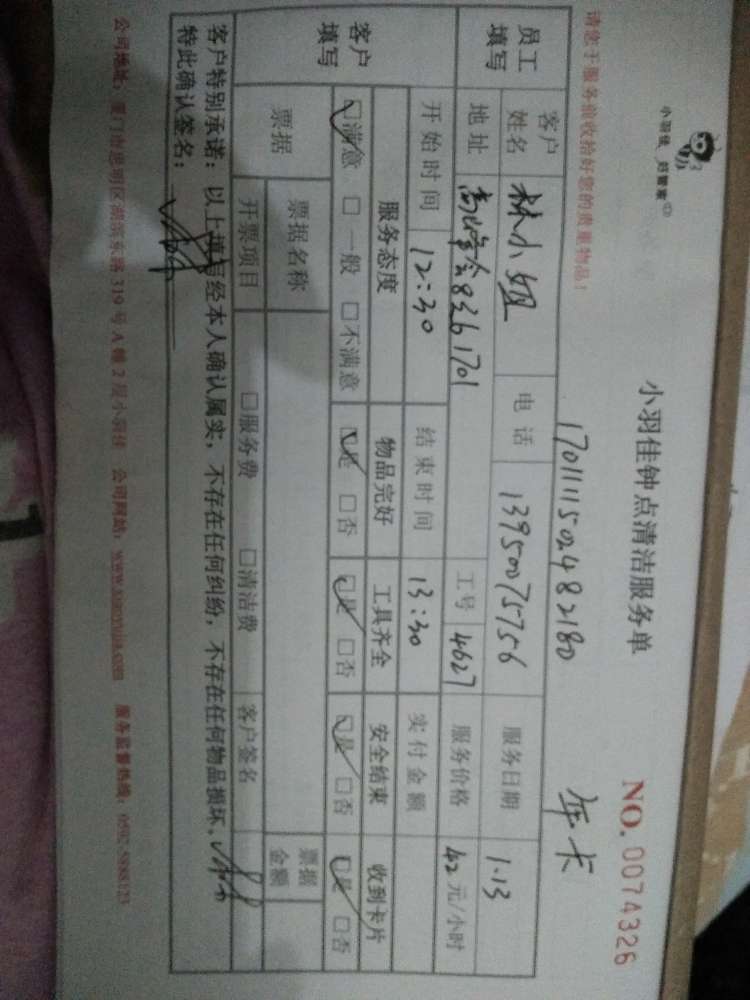 小羽佳 好管家
小羽佳钟点清洁服务单
NO. 0074326
请您于服务前收拾好您的贵重物品!
1701111502482180
年卡
员工填写
客户姓名 林小姐 电话 13950075756 服务日期 1.13
地址 8361701 工号 4627 服务价格 42 元/小时
客户填写
开始时间 12:30 结束时间 13:30 实付金额
服务态度 物品完好 工具齐全 安全结束 收到卡片
☑满意 □一般 □不满意 ☑是 □否 ☑是 □否 ☑是 □否 ☑是 □否
票据 票据名称 票据金额
开票项目 □服务费 □清洁费 客户签名
客户特别承诺:以上填写经本人确认属实,不存在任何纠纷,不存在任何物品损坏,
特此确认签名:
公司地址:厦门市思明区湖滨东路319号A幢2层小羽佳 公司网站:www.xiaoyujia.com 服务监督热线:0592-5888123